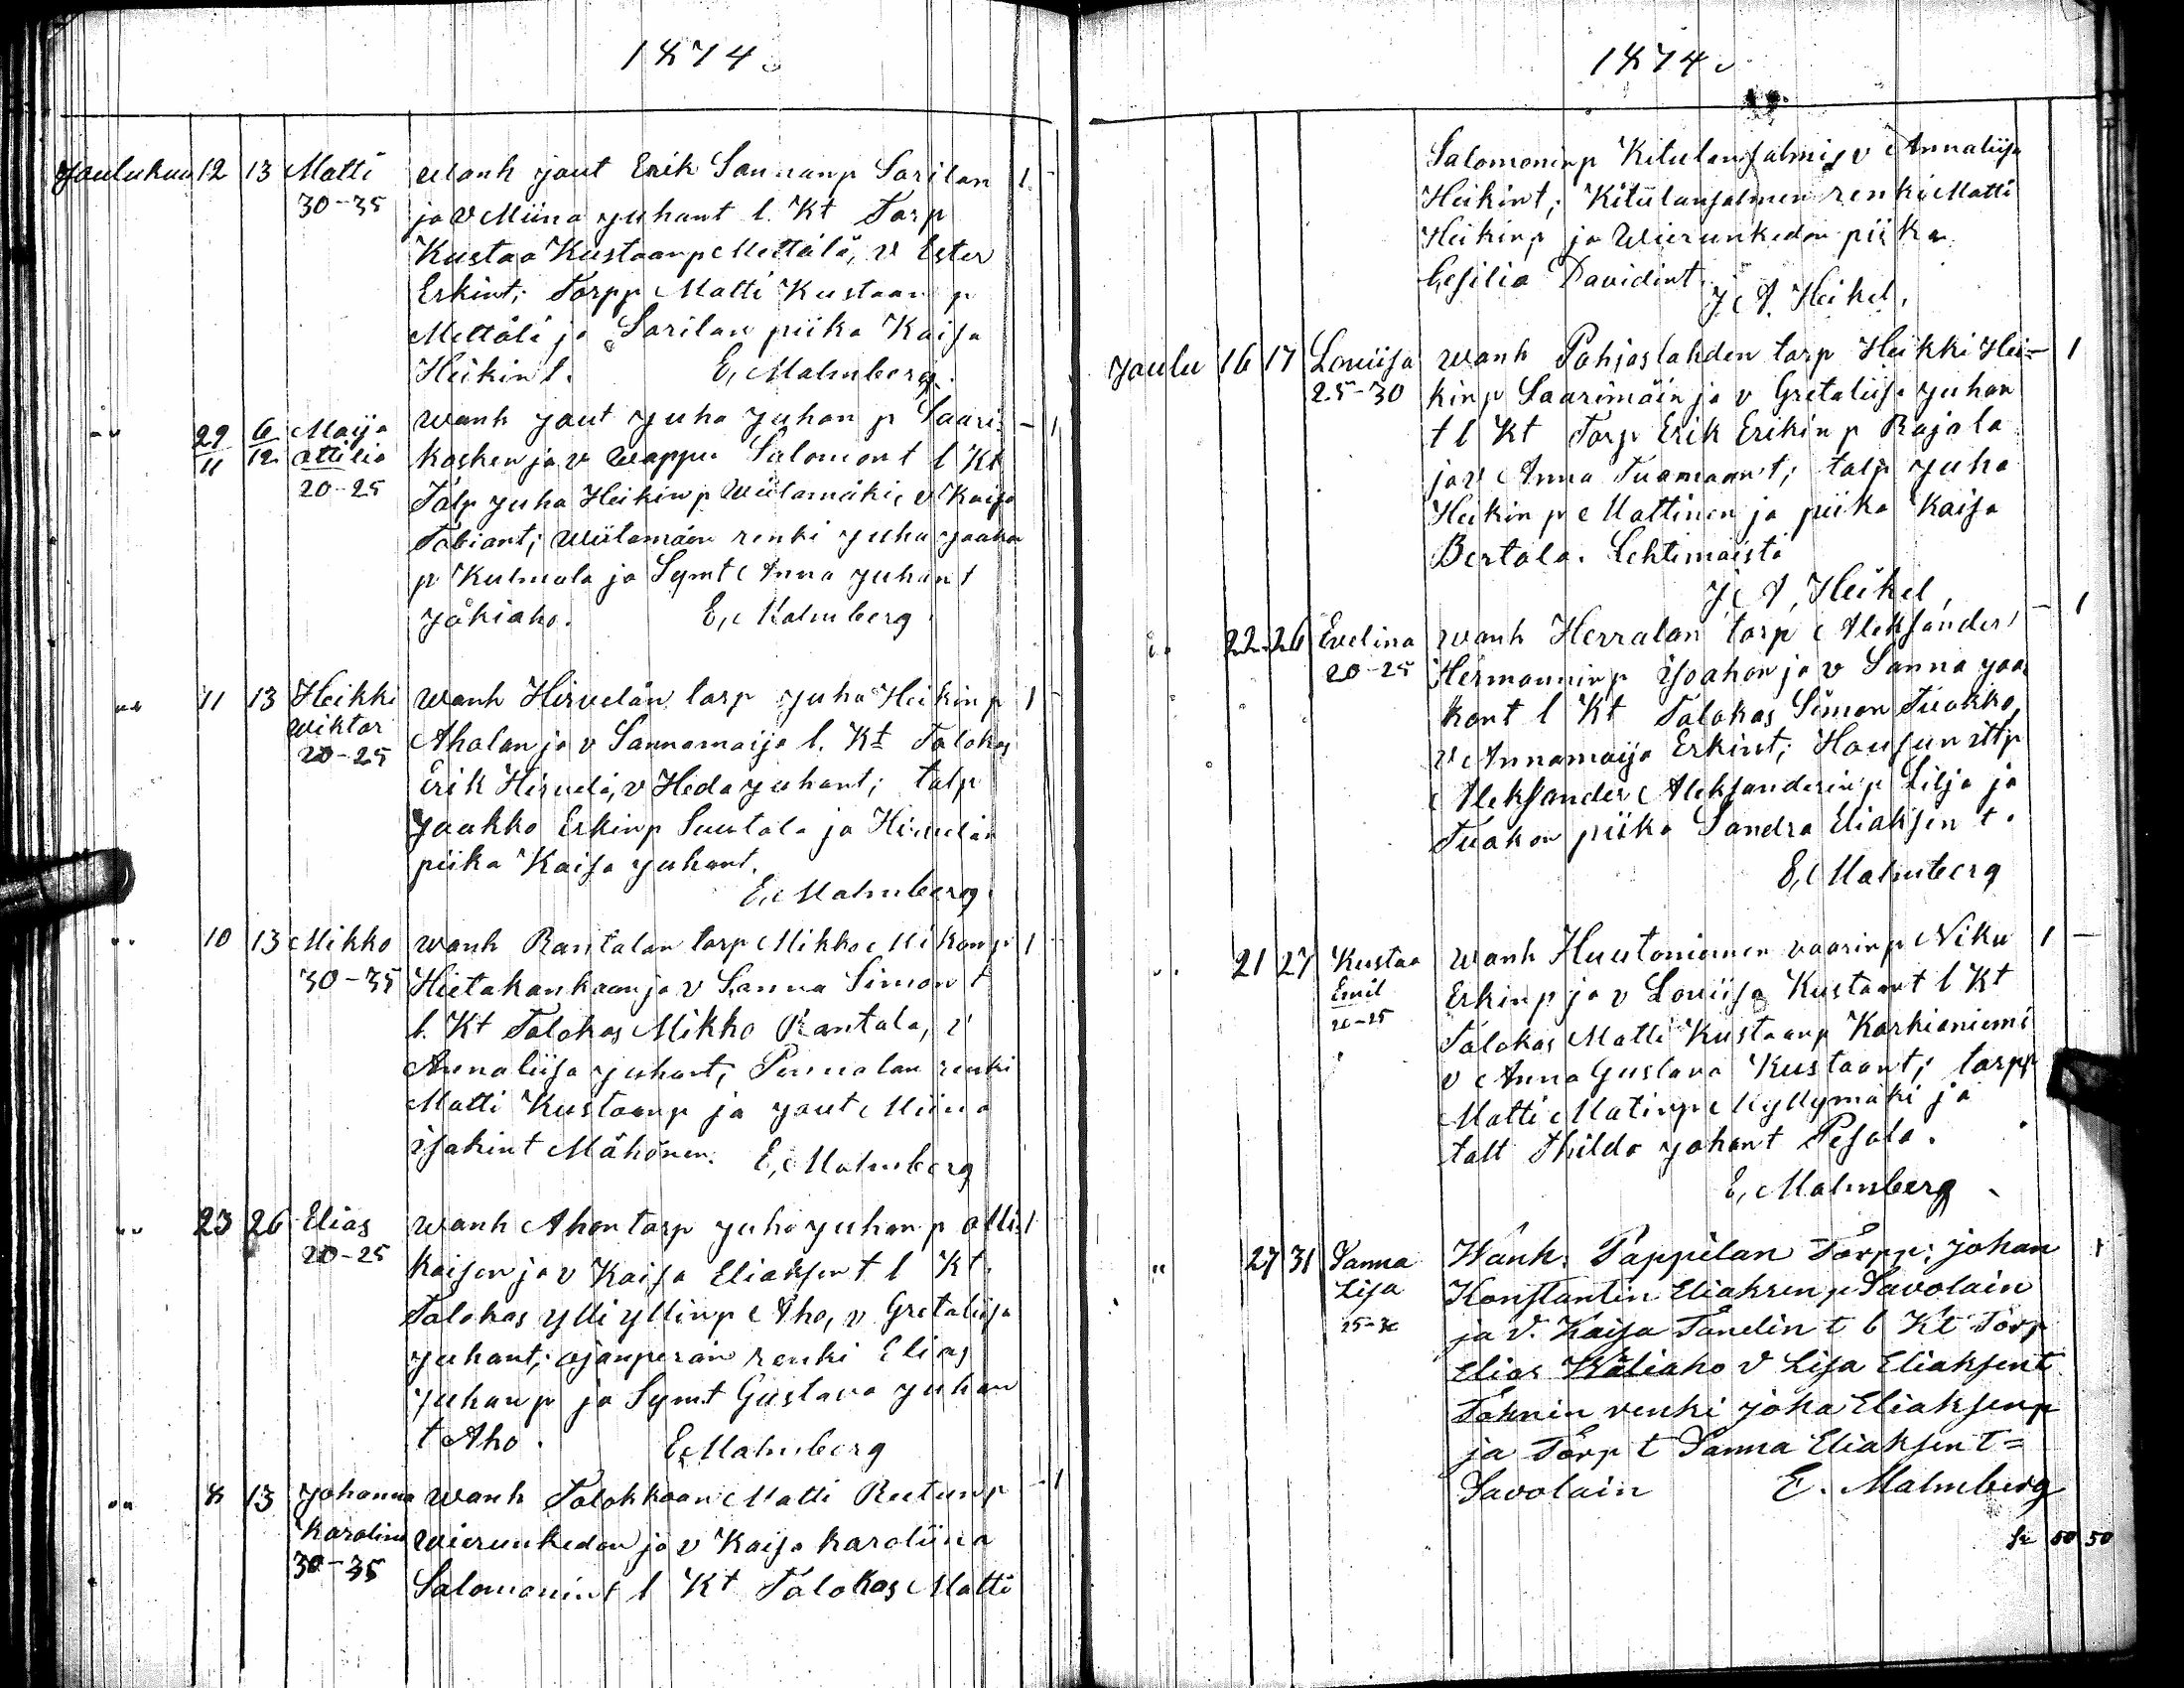 1874.
Joulukuu 12 13 Matti Wanh jout Erik Sannanp Sarilan 1 -
30-35 ja V Miina Juhant l. Kt Torp
Kustaa Kustaanp Mettälä, v Ester
Erkint; Torpp Matti Kustaan p
Mettälä ja Sarilan piika Kaisa
Heikin t. E, Malmberg.
" 29/11 6/12 Maija Wanh jout Juha Juhan p Saari- - 1
Ottilia kosken ja v Wappu Salomon t l Kt
20-25 Talp Juha Heikinp Wiitamäki, v Kaisa
Tobiant; Wiitamäen renki Juha Jaakon
p Kulmala ja Symt Anna Juhan t
Jokiaho. E, Malmberg
" 11 13 Heikki Wanh Hirvelän torp Juha Heikin p 1
Wiktor Aholan ja v Sannamaija l. Kt Talokas
20-25 Erik Hirvelä, v Heda Juhant; talp
Jaakko Erkinp Suutala ja Hirvelän
piika Kaisa Juhant.
E, Malmberg.
" 10 13 Mikko Wanh Rantalan torp Mikko Mikon p 1
30-35 Hietakankaan ja v Sanna Simon t
l. Kt Talokas Mikko Rantala, v
Annaliisa Juhant, Pennalan renki
Matti Kustaanp ja jout Miina
Isakint Mähönen. E, Malmberg
" 23 26 Elias Wanh Ahon torp Juho Juhan p Olli- 1
20-25 kaisen ja v Kaisa Eliaksen t l Kt.
Talokas Ylli Yllinp Aho, v Gretaliisa
Juhant; Ojanperän renki Elias
Juhanp ja Symt Gustava Juhan
t Aho. E, Malmberg
" 8 13 Johanna Wanh Talokkaan Matti Reetunp - 1
Karolina Wierunkedon ja v Kaisa Karoliina
30-35 Salomonint l Kt Talokas Matti
1874.
Salomoninp Kitulansalmi, v Annaliisa
Heikint; Kitulansalmen renki Matti
Heikinp ja Wierunkedon piika
Cesilia Davidint.
J. A. Heikel,
Joulu 16 17 Lowiisa Wanh Pohjaslahden torp Heikki Hei- - 1
25-30 kinp Saarimäin ja v Gretaliisa Juhan
t l Kt Torp Erik Erikin p Rajala
ja v Anna Tuomaant; talp Juha
Heikin p Mattinen ja piika Kaisa
Bertala. Lehtimäistä
J. A, Heikel,
" 22 26 Evelina Wanh Herralan torp Aleksander - 1
20-25 Hermanninp Isoahon ja v Sanna Jaa
kont l Kt Talokas Simon Tuokko,
v Annamaija Erkint; Housun ittp
Aleksander Aleksanderinp Lilja ja
Tuokon piika Sandra Eliaksen t.
E, Malmberg
" 21 27 Kustaa Wanh Huutoniemen vaarinp Niku 1 -
Emil Erkinp ja v Lowiisa Kustaant l Kt
20-25 Talokas Matti Kustaanp Karhianiemi
v Anna Gustava Kustaant; torpp
Matti Matinp Myllymäki ja
talt Hilda Johant Pesola.
E, Malmberg
" 27 31 Sanna Wanh. Pappilan Torpp: Johan 1
Lisa Konstantin Eliaksenp Savolain
25-30 ja V. Kaisa Tandelin t l Kt Torp
Elias Wäliaho V Lisa Eliaksent
renki Joha Eliaksenp
ja Torp t Sanna Eliaksen t=
Savolain E. Malmberg
50 50